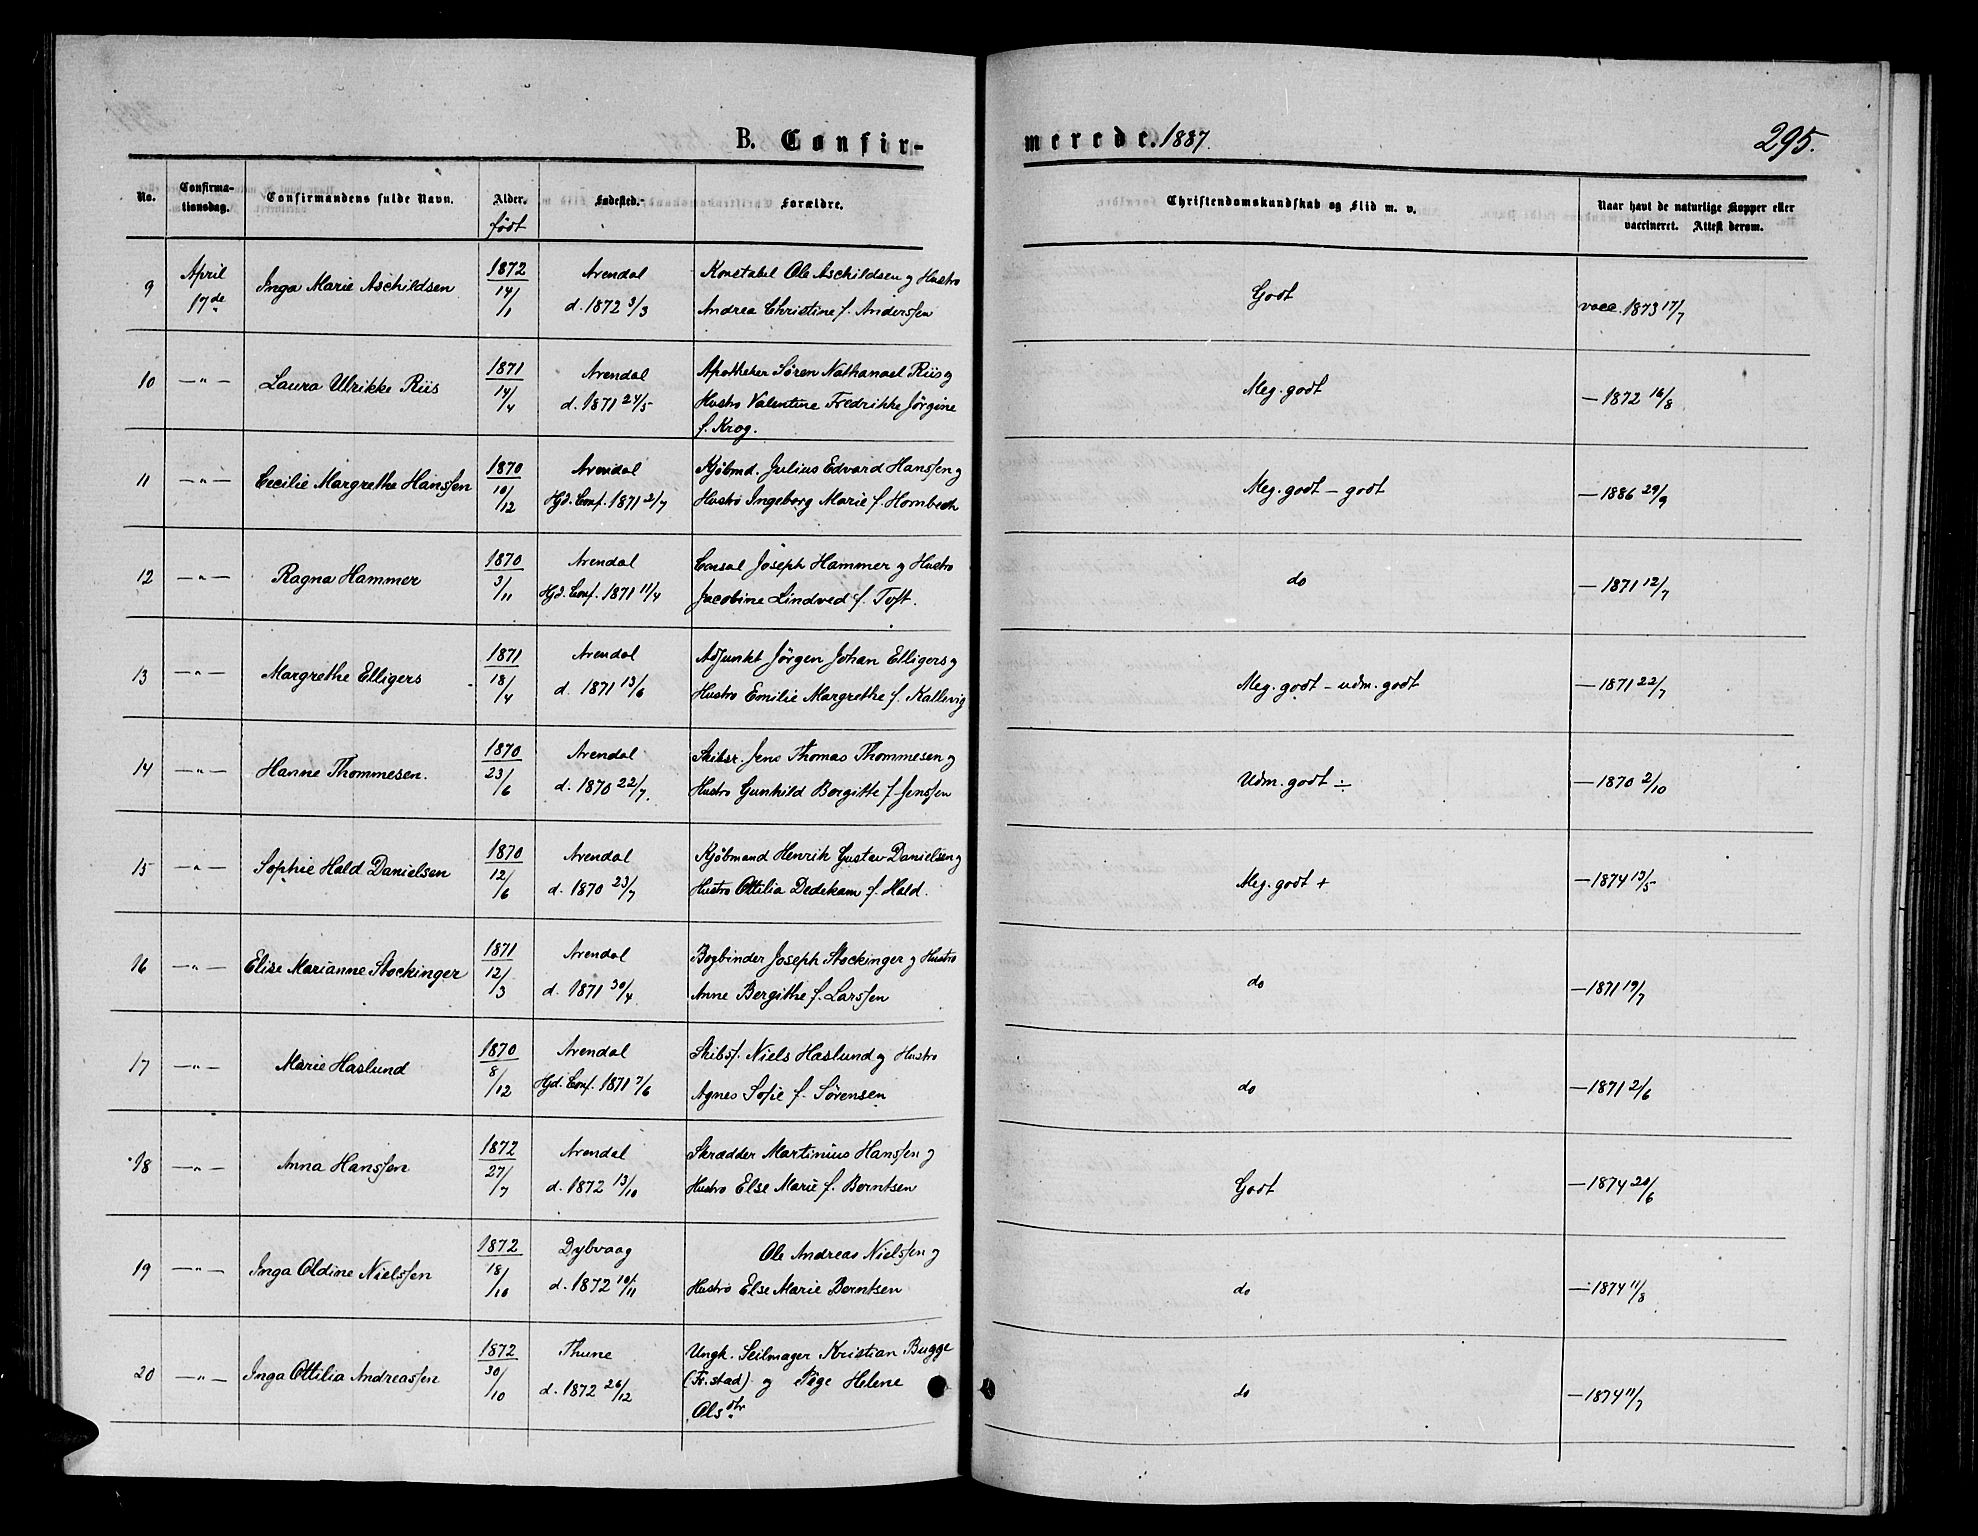 B. Confir-
merede. 1887.
295.
No. Confirma-tionsdag. Confirmandens fulde Navn. Alder. født Fødested. Forældre. Christendomskundskab og Flid m. v. Naar havt de naturlige Kopper eller vaccineret. Attest derom.
9 April 17de Inga Marie Aschildsen 1872 14/1 Arendal d. 1872 3/3 Konstabel Ole Aschildsen og Hustro
Andrea Christine f. Anderssen Godt vacc. 1873 17/7
10 —"— Laura Ulrikke Riis 1871 14/4 Arendal d. 1871 24/5 Apotheker Søren Nathanael Riis og
Hustro Valentine Fredrikke Jörgine
f. Krog. Meg. godt — 1872 16/8
11 —"— Cecilie Margrethe Hanssen 1870 10/12 Arendal Hjd. Conf. 1871 2/7 Kjöbmd. Julius Edvard Hanssen og
Hustro Ingeborg Marie f. Hornbech Meg. godt - godt — 1886 29/9
12 —"— Ragna Hammer 1870 3/11 Arendal Hjd. Conf. 1871 11/4 Consul Joseph Hammer og Hustro
Jacobine Lindved f. Toft. do — 1871 12/7
13 —"— Margrethe Elligers 1871 18/4 Arendal d. 1871 13/6 Adjunkt Jörgen Johan Elligers og
Hustro Emilie Margrethe f. Kallevig Meg. godt - udm. godt — 1871 22/7
14 —"— Hanne Thommesen. 1870 23/6 Arendal d. 1870 22/7. Skibsr. Jens Thomas Thommesen og
Hustro Gunhild Borgitte f. Jenssen Udm. godt ÷ — 1870 2/10
15 —"— Sophie Hald Danielsen 1870 12/6 Arendal d. 1870 23/7 Kjöbmand Henrik Gustav Danielsen og
Hustro Ottilia Dedekam f. Hald. Meg. godt + — 1874 13/5
16 —"— Elise Marianne Stockinger 1871 12/3 Arendal d. 1871 30/4 Bogbinder Joseph Stockinger og Hustro
Anne Bergithe f. Larssen do — 1871 19/7
17 —"— Marie Haslund 1870 8/12 Arendal Hjd. Conf. 1871 7/6 Skibsf. Niels Haslund og Hustro
Agnes Sofie f. Sörensen do — 1871 2/6
18 —"— Anna Hanssen 1872 27/7 Arendal d. 1872 13/10 Skrædder Martinius Hanssen og
Hustro Else Marie f. Berntsen Godt — 1874 20/6
19 —"— Inga Oldine Nielssen 1872 18/10 Dybvaag d. 1872 10/11 Ole Andreas Nielssen og
Hustro Else Marie Berntsen do — 1874 11/8
20 —"— Inga Ottilia Andreassen 1872 30/10 Thune d. 1872 26/12 Ungk. Seilmager Kristian Bugge
(Fr.stad) og Pige Helene
Olsdtr do — 1874 11/7